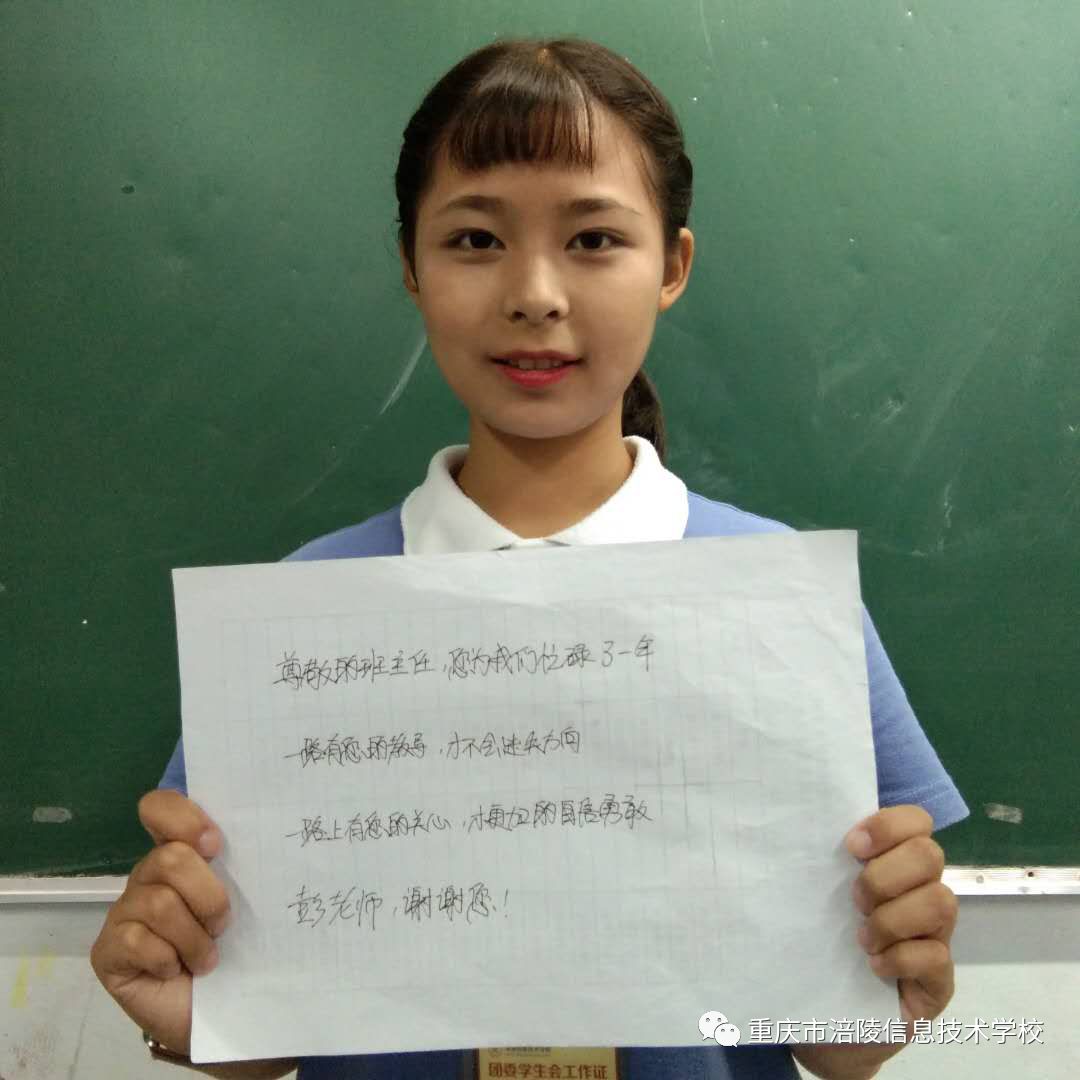 尊敬的班主任，您为我们忙碌了一年
一路有您的教导，才不会迷失方向
一路上有您的关心，才更加的自信勇敢
彭老师，谢谢您！
重庆市涪陵信息技术学校
团委学生会工作证